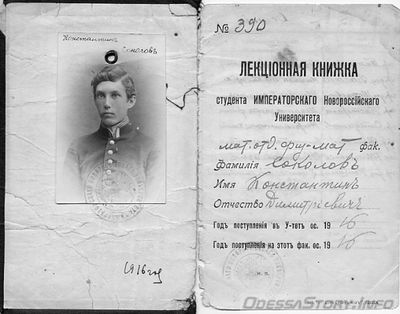 Константинъ
Соколовъ
1916 год
№ 390
ЛЕКЦІОННАЯ КНИЖКА
студента ИМПЕРАТОРСКАГО Новороссійскаго
Университета
мат. отд. физ-мат фак.
Фамилія Соколовъ
Имя Константинъ
Отчество Димитріевичъ
Годъ поступленія въ У-тетъ ос. 1916
Годъ поступленія на этотъ фак. ос. 1916
OdessaStory.info